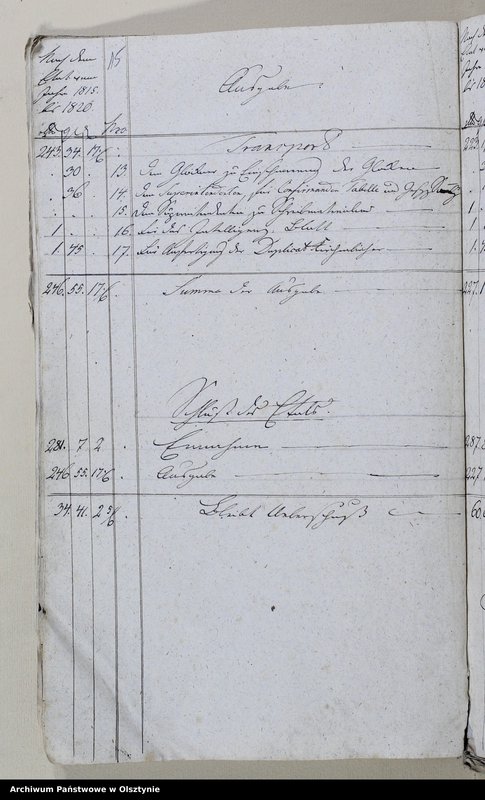 Nach dem
Etat vom
Jahre 1815
bis 1820
No
Ausgabe.
Transport
243. 34. 17/6
30. 13. Dem Glöckner zu Einschmierung der Glocken
36. 14. Dem Superintendenten für Tabelle und
15. Dem Superintendenten zu Schreibmaterialien
1. 16. Für das Intelligenz-Blatt
1. 45. 17. Für Anfertigung der Duplicat Kirchenbücher
246. 55. 17/6 Summa der Ausgabe
Schluß des Etats.
281. 7. 2 Einnahme
246. 55. 17/6 Ausgabe
34. 41. 2 5/6 Bleibt Ueberschuß
Archiwum Państwowe w Olsztynie